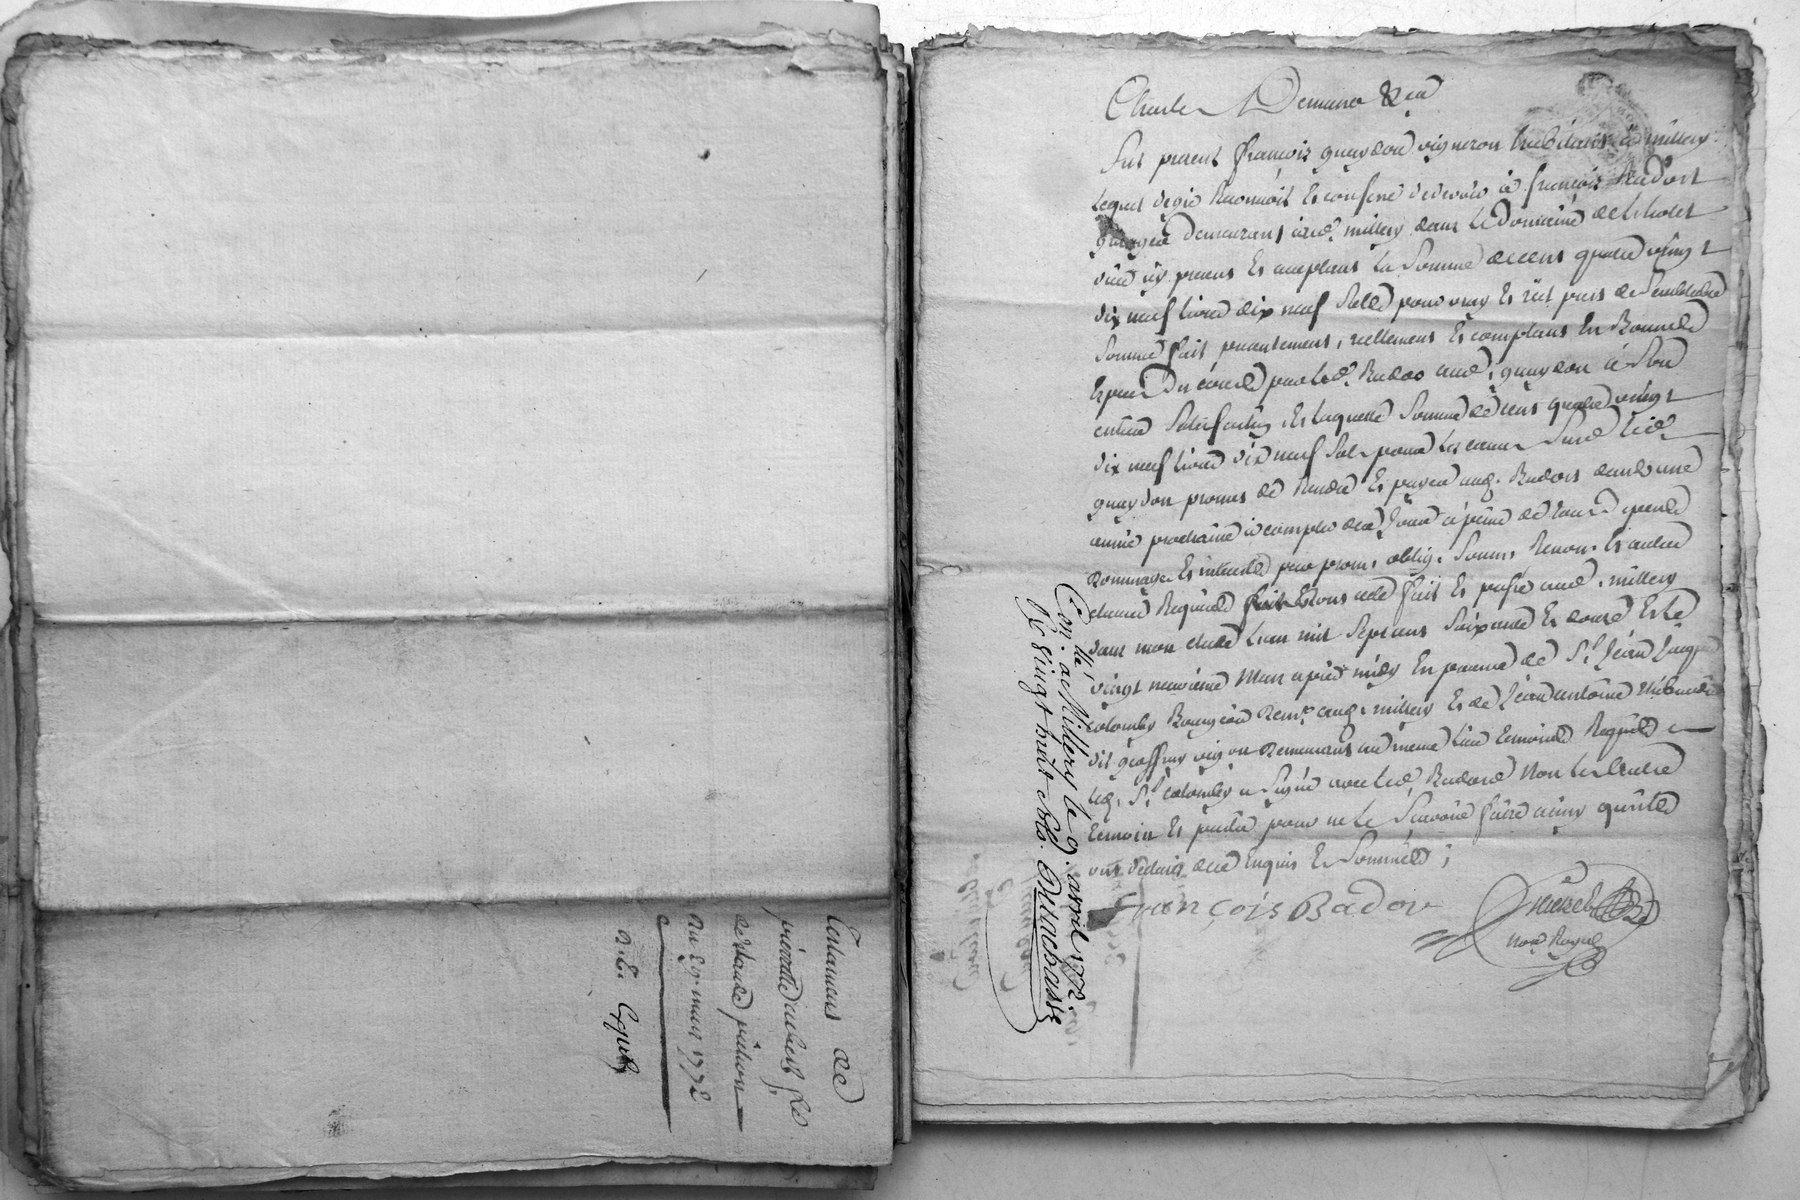 Testament de
pierrette aubert fe
de claude pichon
du 29 mars 1772
Exped
Sut present françois guaydon vigneron habitant a millery
lequel de gré Reconnoit Et confesse devoir à françois Badort
demeurant aud. millery dans le domaine de
icy present Et acceptant la somme de cent quatre vingt
dix neuf livres dix neuf sols pour vray Et juste prest de semblable
somme fait presentement, reellement Et comptant En Bonnes
Especes du cours par led. Badort aud. guaydon à son
entiere satisfaction, Et laquelle somme de cent quatre vingt
dix neuf livres dix neuf sols pour les causes susd. led.
guaydon promet de Rendre Et payer aud. Badort dans une
année prochaine à compter de ce jour à peine de tous depens
dommages Et interests par prom. oblig. soum. Renon. Et autres
clauses Requises dont acte fait Et passé aud. millery
dans mon etude l'an mil sept cent soixante Et douze Et le
vingt neuvieme Mars apres midy En presence de Sr. Jean Jacques
colomby Bourgeois dem.t aud. millery Et de Jean antoine
dit geoffray vig.on demeurant au meme lieu temoins Requis
led. Sr. colomby a signé avec led. Badort Non les autres
temoin Et partie pour ne le sçavoir faire ainsy qu'ils
ont declaré de ce Enquis Et sommés ;
François Bador
Nore Royal
Con.llé a Millery le 9. avril 1772.
R. vingt huit sols.